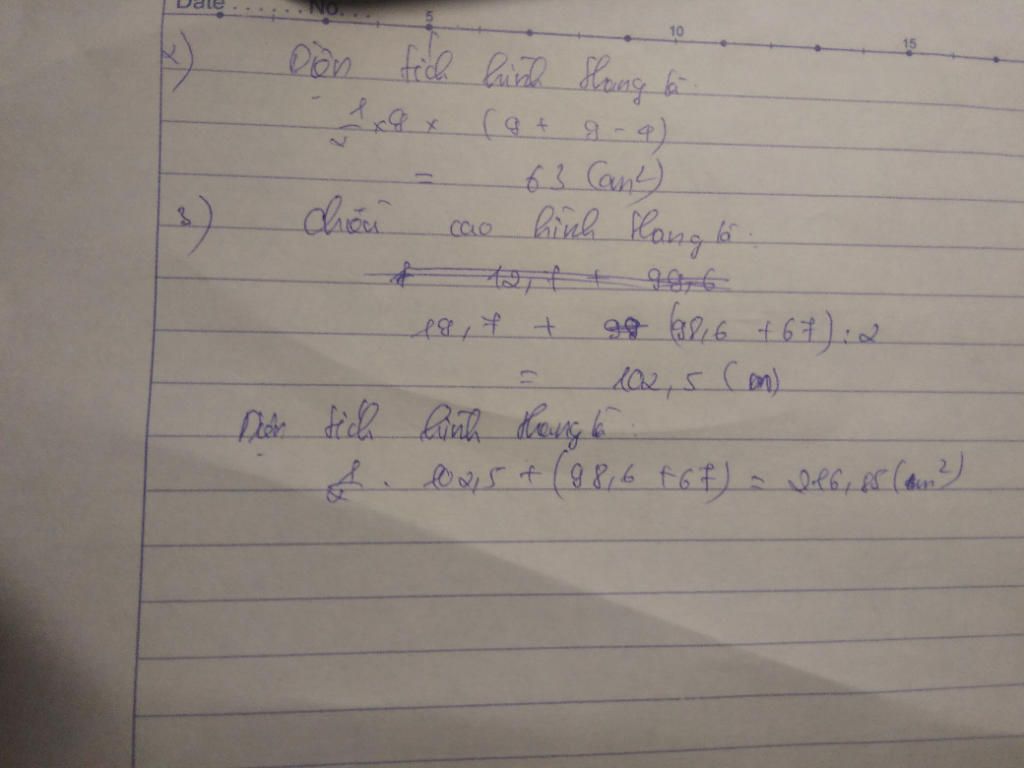 Date ...... No....
5 10 15
2) Diện tích hình thang là:
1/2 x 9 x (9 + 9 - 4)
= 63 (cm²)
3) Chiều cao hình thang là:
1 12,1 + 98,6
19,7 + 98 (98,6 + 67) : 2
= 102,5 (cm)
Diện tích hình thang là:
1/2 . 102,5 + (98,6 + 67) = 216,85 (cm²)